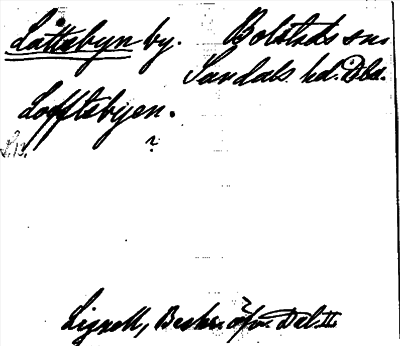 Låttabyn by. Bolstads sn.
Sundals hd. Dls.
Lofftebyen.
?
Lignell, Beskr. öfv. Dal. II